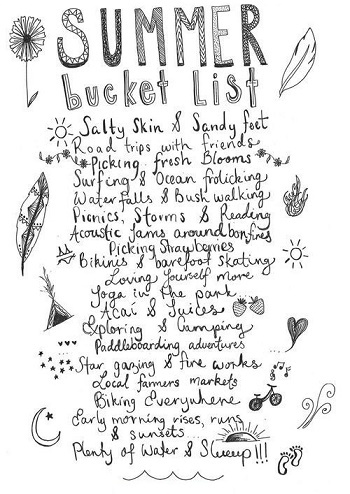 SUMMER
bucket List
Salty Skin & Sandy feet
Road trips with friends
Picking fresh Blooms
Surfing & Ocean frolicking
Waterfalls & Bush walking
Picnics, Storms & Reading
Acoustic Jams around bonfires
Picking Strawberries
Bikinis & barefoot skating
Loving yourself more
Yoga in the park
Acai & Juices
Exploring & Camping
Paddleboarding adventures
Star gazing & fire works
Local farmers markets
Biking Everywhere
Early morning rises, runs
& sunsets...
Plenty of Water & Sleeep!!!